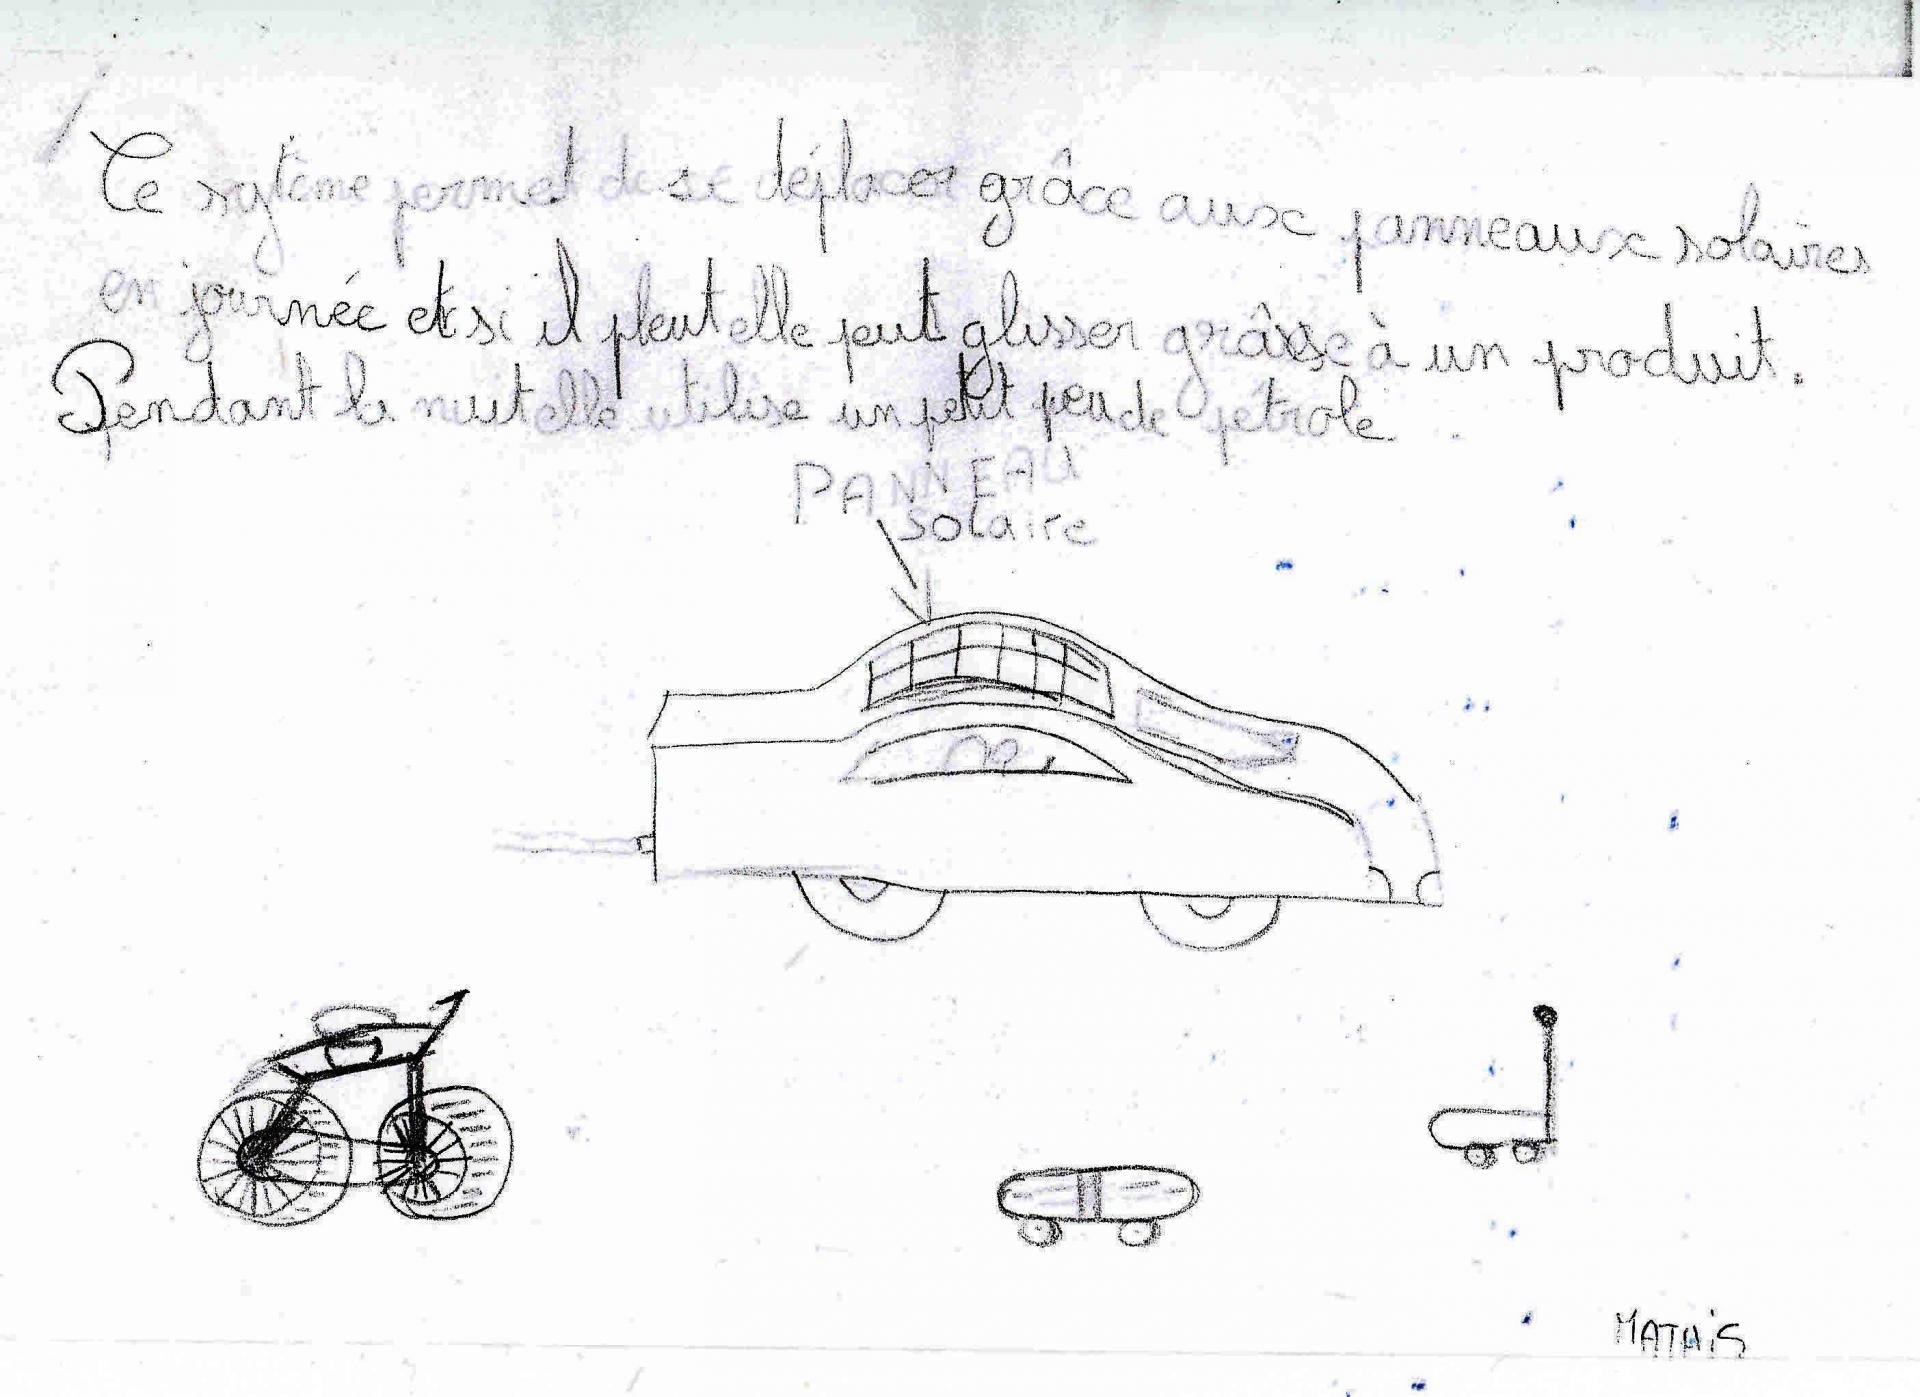 Ce sytème permet de se déplacer grâce aux panneaux solaires
en journée et si il pleut elle peut glisser grâsse à un produit.
Pendant la nuit elle utilise un petit peu de pétrole.
PANNEAU
solaire
MATHiS